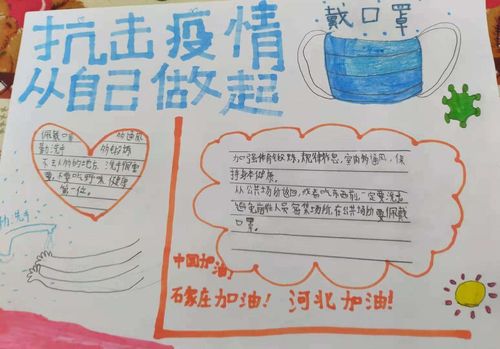 抗击疫情
从自己做起
戴口罩
佩戴口罩 多通风
勤洗手 多锻炼
不去人多的地方 洗手很重
要，不要吃野味 健康
第一位。
加强体育锻炼，规律作息，室内多通风，保
持身体健康。
从公共场所返回，或者吃东西前，一定要洗手
避免前往人员密集场所，在公共场所要佩戴
口罩。
勤洗手
中国加油！
石家庄加油！ 河北加油！